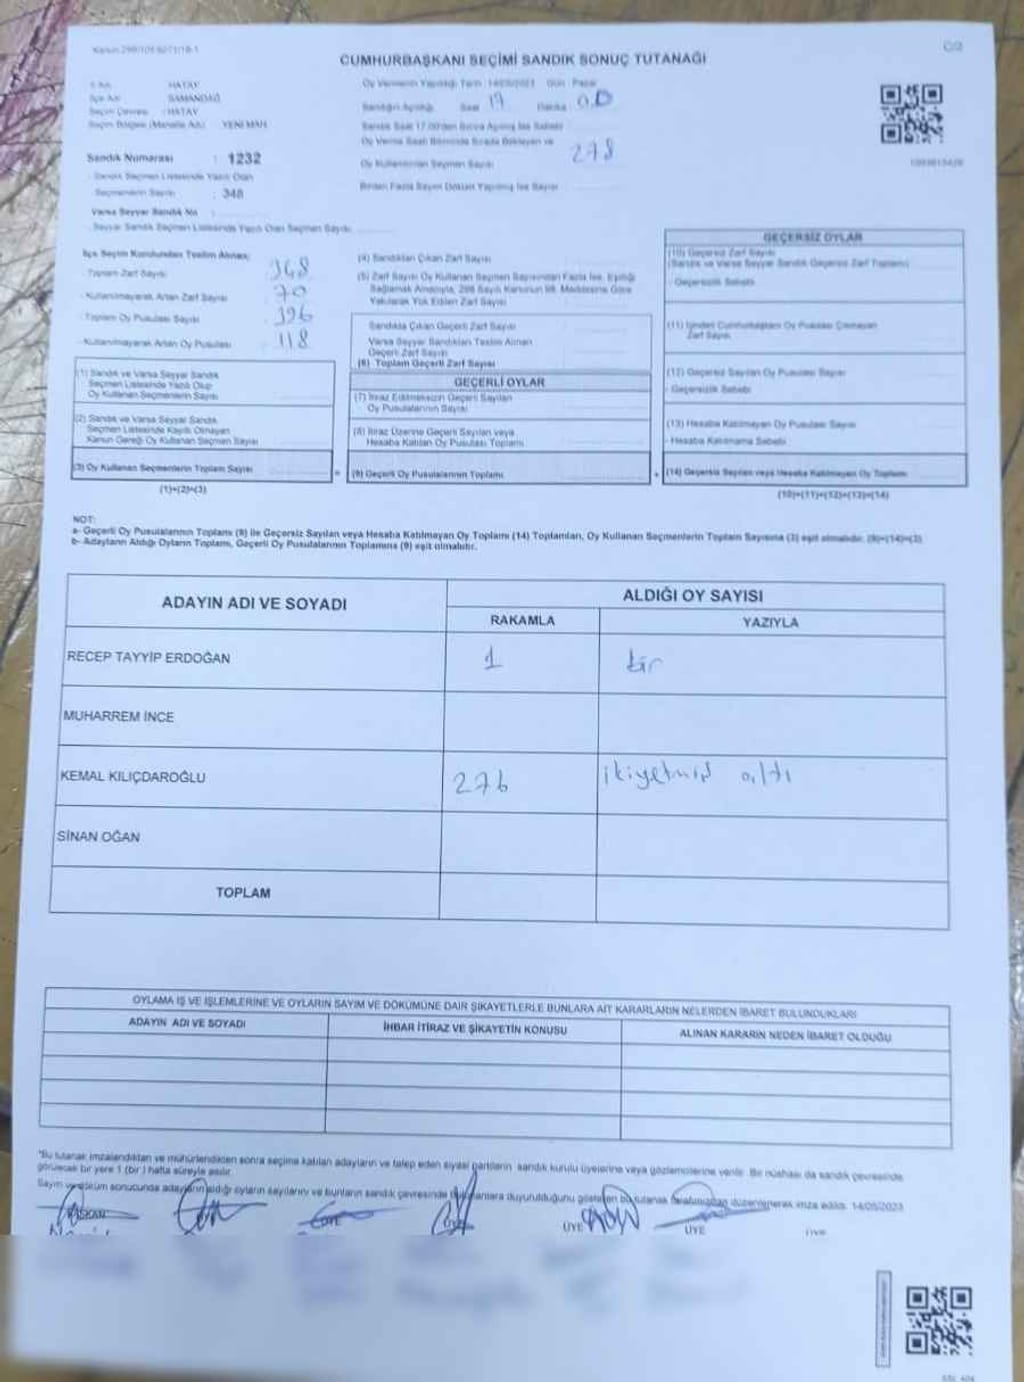 CUMHURBAŞKANI SEÇİMİ SANDIK SONUÇ TUTANAĞI
HATAY
İlçe Adı : SAMANDAĞ
Seçim Çevresi : HATAY
Seçim Bölgesi (Mahalle Adı) : YENİ MAH.
Sandık Numarası : 1232
Sandık Seçmen Listesinde Yazılı Olan
Seçmenlerin Sayısı : 348
Varsa Seyyar Sandık No :
Seyyar Sandık Seçmen Listesinde Yazılı Olan Seçmen Sayısı
Oy Vermenin Yapıldığı Tarih : 14/05/2023 Gün : Pazar
Sandığın Açıldığı Saat 17 Dakika 00
Oy Kullanan Seçmen Sayısı 278
İlçe Seçim Kurulundan Teslim Alınan;
Toplam Zarf Sayısı 368
Kullanılmayarak Artan Zarf Sayısı 70
Toplam Oy Pusulası Sayısı 396
Kullanılmayarak Artan Oy Pusulası 118
(1) Sandık ve Varsa Seyyar Sandık
Seçmen Listesinde Yazılı Olup
Oy Kullanan Seçmenlerin Sayısı
(2) Sandık ve Varsa Seyyar Sandık
Seçmen Listesinde Kayıtlı Olmayan
Kanun Gereği Oy Kullanan Seçmen Sayısı
(3) Oy Kullanan Seçmenlerin Toplam Sayısı
(1)+(2)=(3)
(4) Sandıktan Çıkan Zarf Sayısı
(5) Zarf Sayısı Oy Kullanan Seçmen Sayısından Fazla İse, Eşitliği
Sağlamak Amacıyla, 298 Sayılı Kanunun 98. Maddesine Göre
Yakılarak Yok Edilen Zarf Sayısı
Sandıkta Çıkan Geçerli Zarf Sayısı
Varsa Seyyar Sandıktan Teslim Alınan
Geçerli Zarf Sayısı
(6) Toplam Geçerli Zarf Sayısı
GEÇERLİ OYLAR
(7) İtiraz Edilmeksizin Geçerli Sayılan
Oy Pusulalarının Sayısı
(8) İtiraz Üzerine Geçerli Sayılan veya
Hesaba Katılan Oy Pusulası Toplamı
(9) Geçerli Oy Pusulalarının Toplamı
GEÇERSİZ OYLAR
(10) Geçersiz Zarf Sayısı
(Sandık ve Varsa Seyyar Sandık Geçersiz Zarf Toplamı)
- Geçersizlik Sebebi
(11) İçinden Cumhurbaşkanı Oy Pusulası Çıkmayan
Zarf Sayısı
(12) Geçersiz Sayılan Oy Pusulası Sayısı
- Geçersizlik Sebebi
(13) Hesaba Katılmayan Oy Pusulası Sayısı
- Hesaba Katılmama Sebebi
(14) Geçersiz Sayılan veya Hesaba Katılmayan Oy Toplamı
(10)+(11)+(12)+(13)=(14)
NOT:
a- Geçerli Oy Pusulalarının Toplamı (9) ile Geçersiz Sayılan veya Hesaba Katılmayan Oy Toplamı (14) Toplamları, Oy Kullanan Seçmenlerin Toplam Sayısına (3) eşit olmalıdır. (9)+(14)=(3)
b- Adayların Aldığı Oyların Toplamı, Geçerli Oy Pusulalarının Toplamına (9) eşit olmalıdır.
ADAYIN ADI VE SOYADI
ALDIĞI OY SAYISI
RAKAMLA YAZIYLA
RECEP TAYYİP ERDOĞAN 1 bir
MUHARREM İNCE
KEMAL KILIÇDAROĞLU 276 ikiyetmiş altı
SİNAN OĞAN
TOPLAM
OYLAMA İŞ VE İŞLEMLERİNE VE OYLARIN SAYIM VE DÖKÜMÜNE DAİR ŞİKAYETLERLE BUNLARA AİT KARARLARIN NELERDEN İBARET BULUNDUKLARI
ADAYIN ADI VE SOYADI İHBAR İTİRAZ VE ŞİKAYETİN KONUSU ALINAN KARARIN NEDEN İBARET OLDUĞU
*Bu tutanak imzalandıktan ve mühürlendikten sonra seçime katılan adayların ve talep eden siyasi partilerin sandık kurulu üyelerine veya gözlemcilerine verilir. Bir nüshası da sandık çevresinde
görülecek bir yere 1 (bir) hafta süreyle asılır.
Sayım ve döküm sonucunda adayların aldığı oyların sayılarını ve bunların sandık çevresinde bulunanlara duyurulduğunu gösteren bu tutanak tarafımızdan düzenlenerek imza edildi. 14/05/2023
BAŞKAN ÜYE ÜYE ÜYE ÜYE